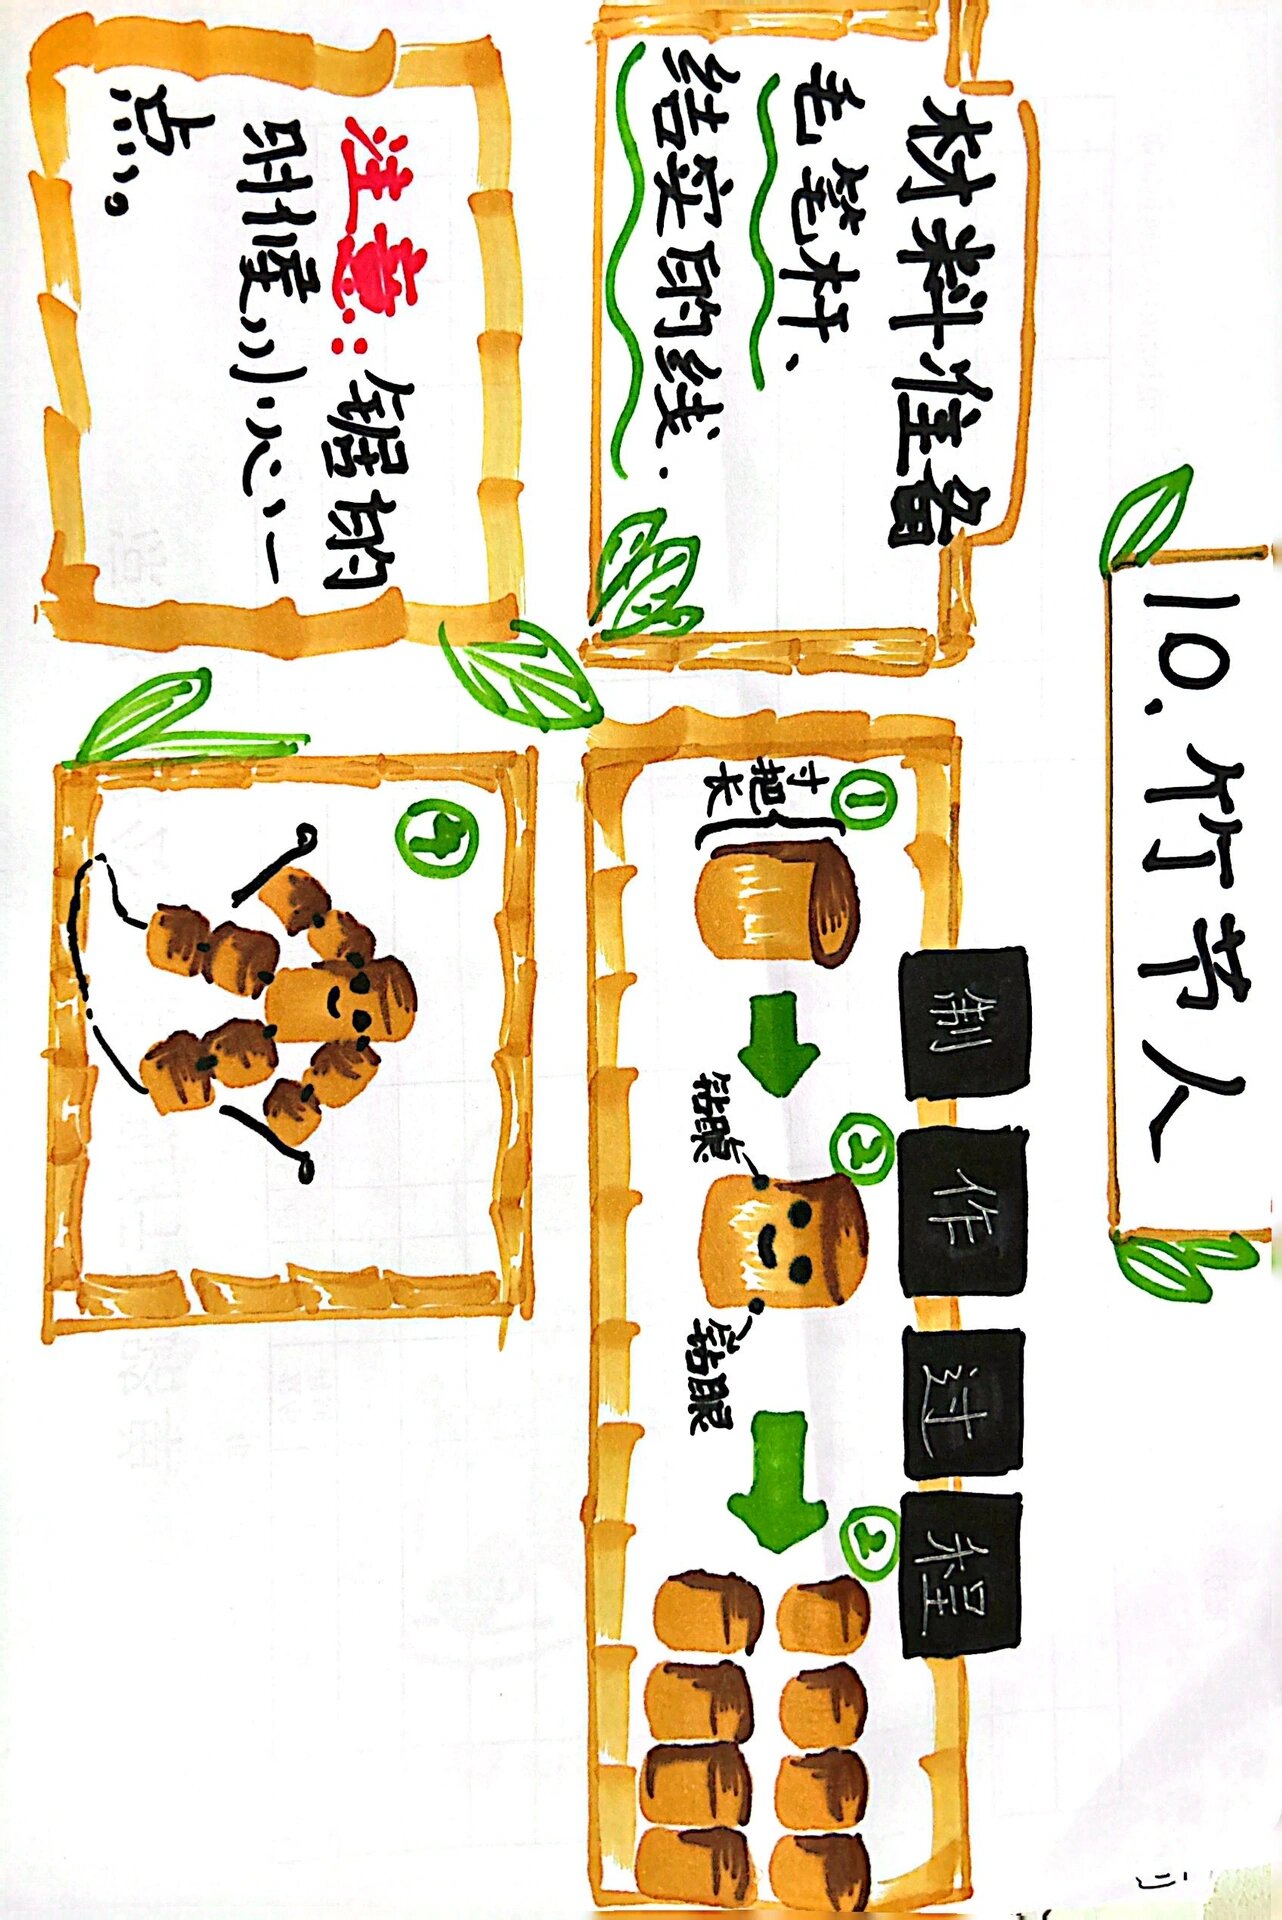 10.竹节人
材料准备
毛笔杆、
结实的线.
制作过程
①
寸把长
②
钻眼
钻眼
②
注意:锯的
时候小心一
点。
④